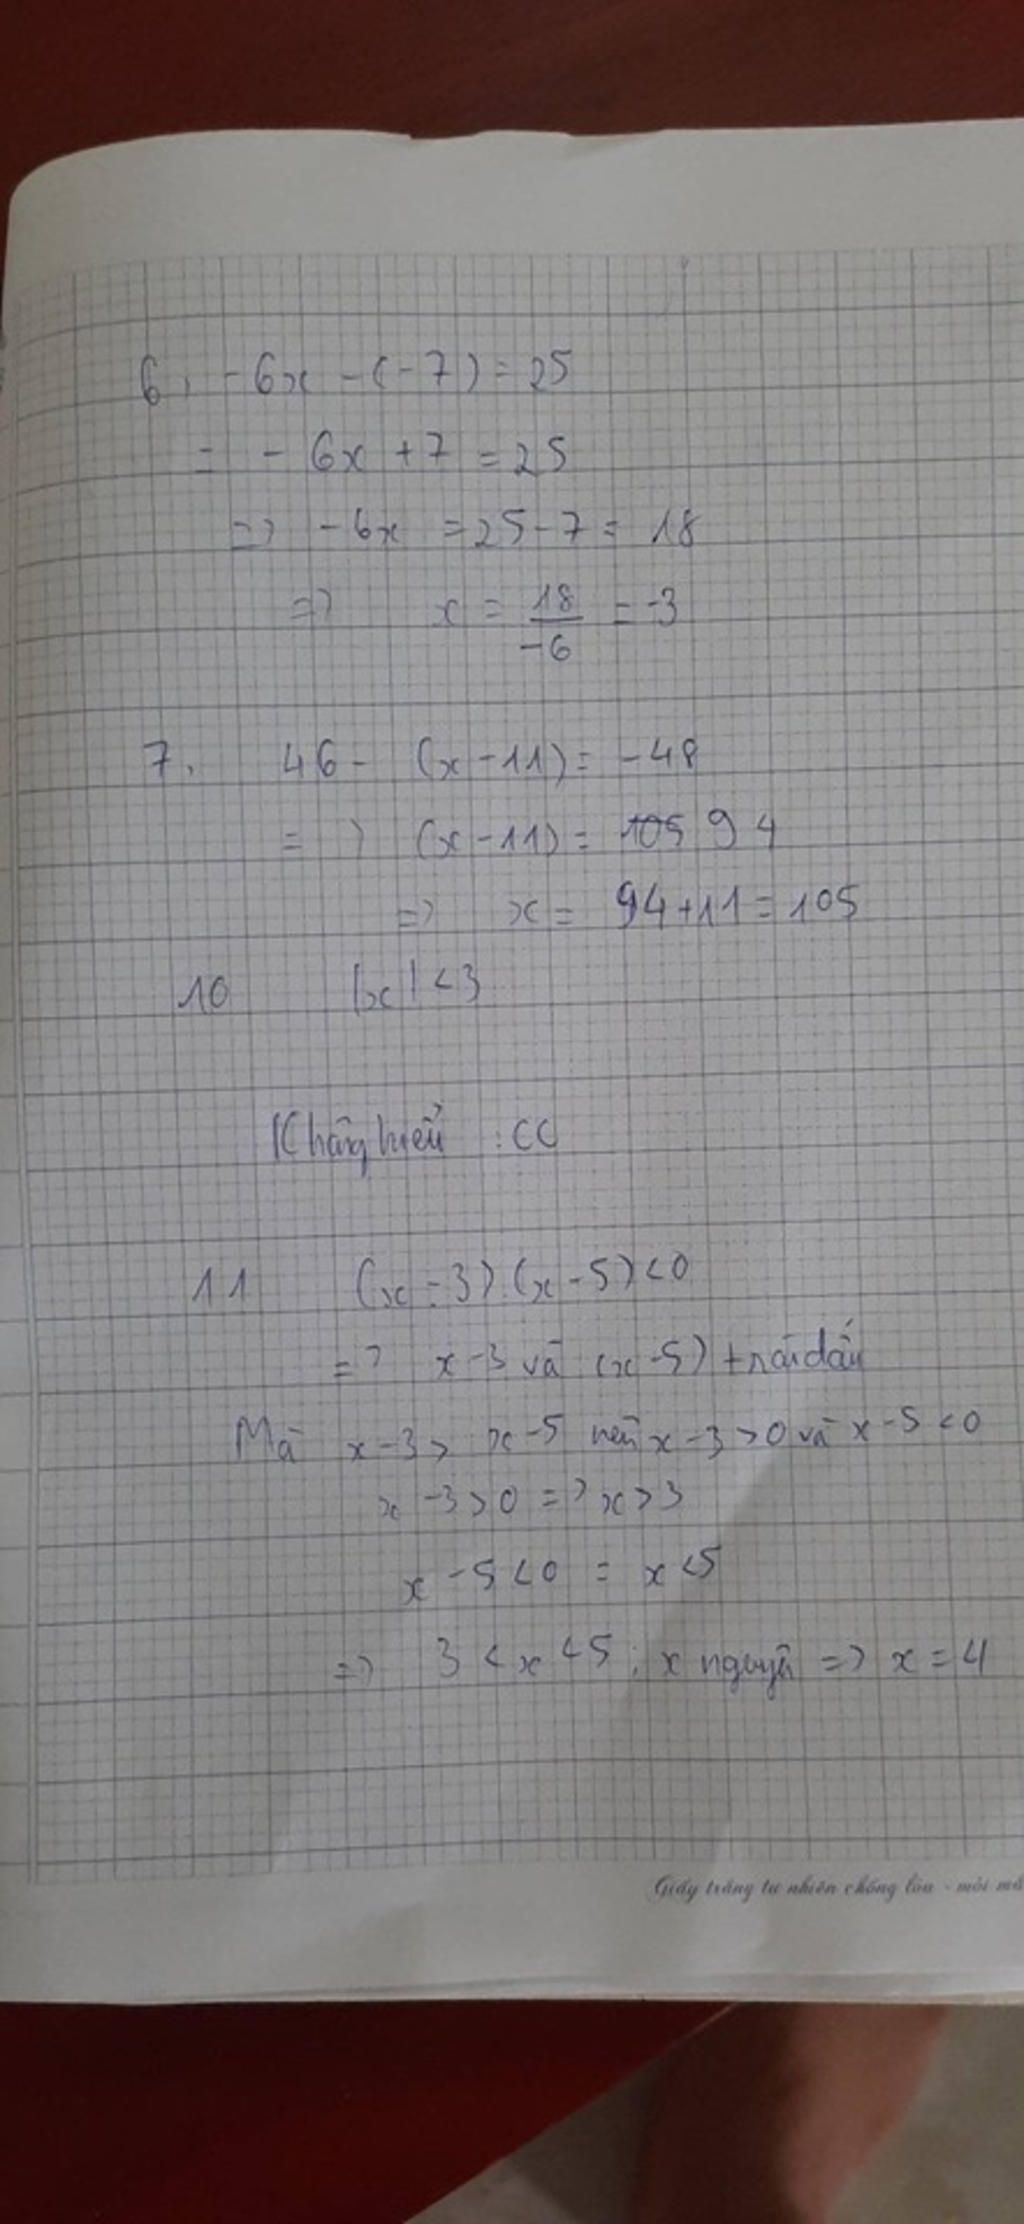 6, -6x - (-7) = 25
= - 6x + 7 = 25
=> -6x = 25 - 7 = 18
=> x = 18/-6 = -3
7, 46 - (x - 11) = -48
=> (x - 11) = 105 94
=> x = 94 + 11 = 105
10 |x| < 3
Không hiểu :CC
11 (x - 3).(x - 5) < 0
=> x - 3 và (x - 5) trái dấu
Mà x - 3 > x - 5 nên x - 3 > 0 và x - 5 < 0
x - 3 > 0 => x > 3
x - 5 < 0 = x < 5
=> 3 < x < 5 ; x nguyên => x = 4
Giấy trắng tự nhiên chống lóa - mỏi mắ